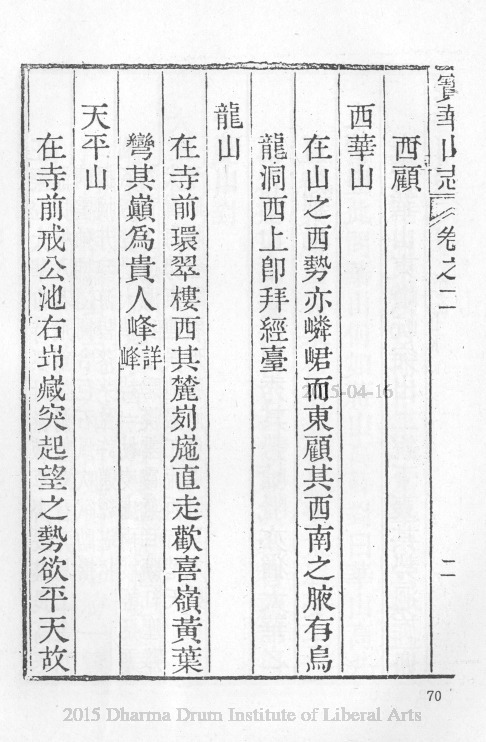 寶華山志 卷之二 二
西顧
西華山
在山之西勢亦嶙峮而東顧其西南之腋有烏
龍洞西上卽拜經臺
龍山
在寺前環翠樓西其麓峛崺直走歡喜嶺黃葉
彎其巔為貴人峰詳峰
天平山
在寺前戒公池右岇嵗突起望之勢欲平天故
2015-04-16
70
2015 Dharma Drum Institute of Liberal Arts